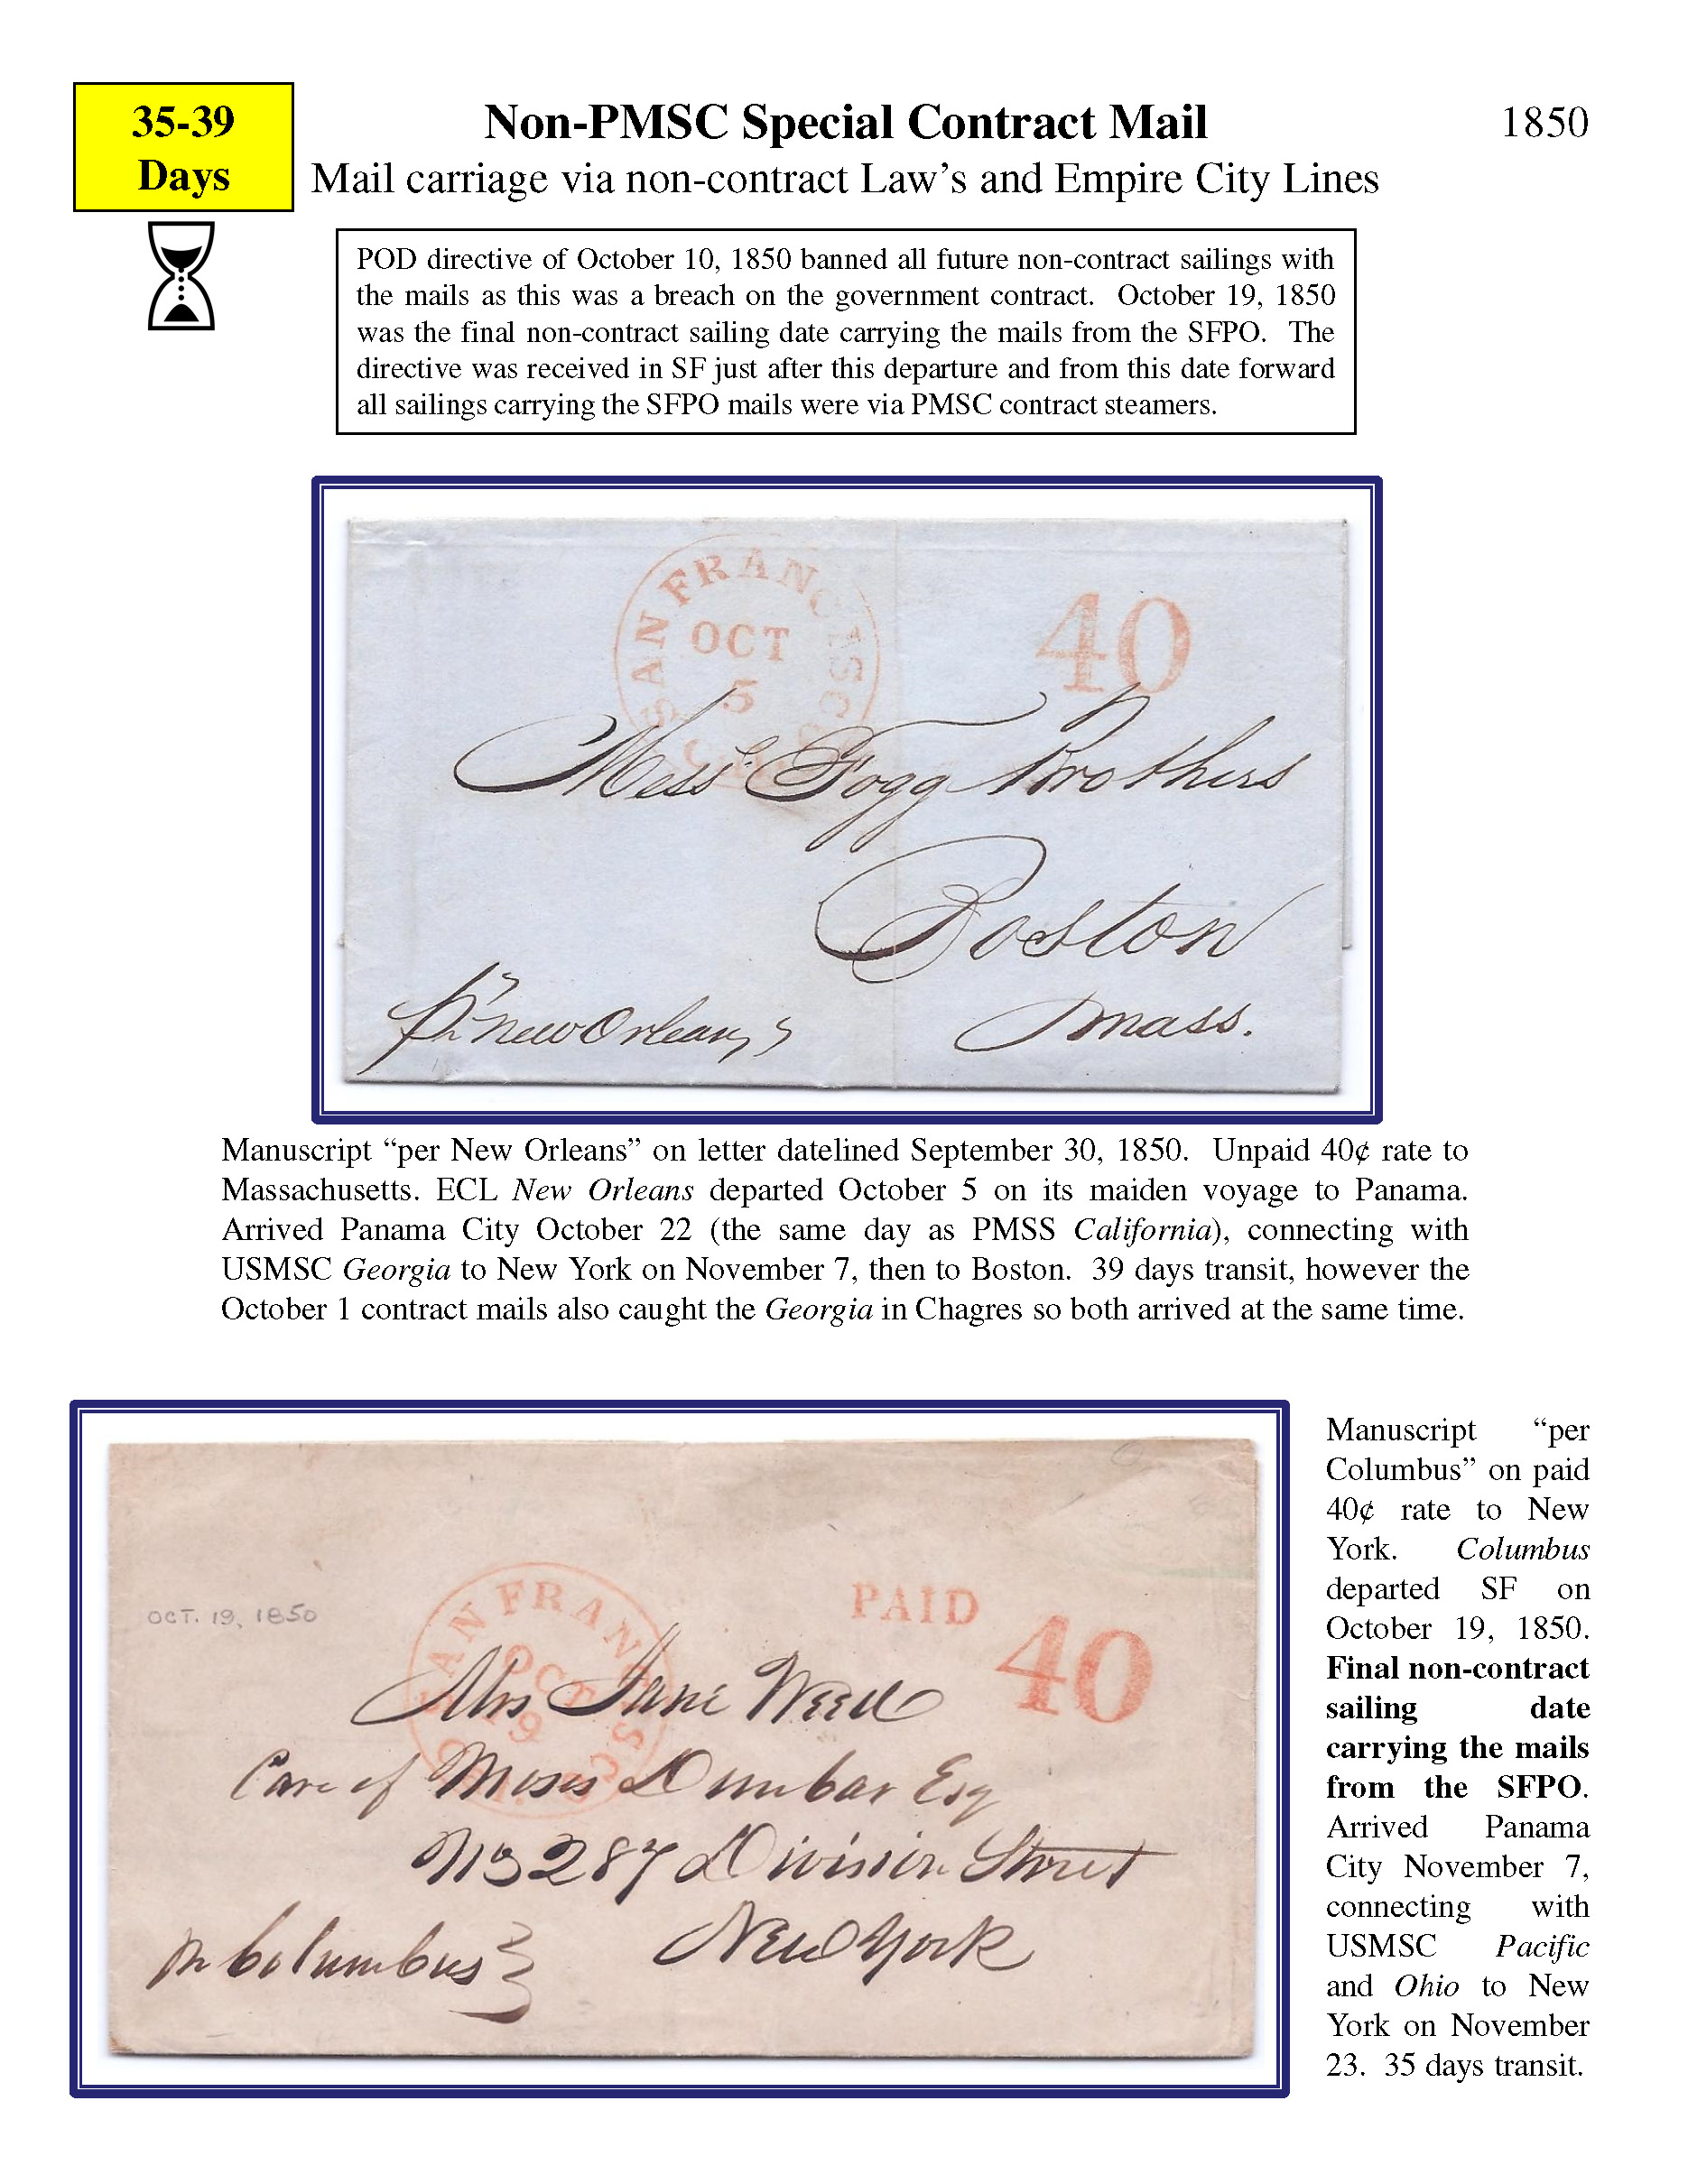 35-39
Days
Non-PMSC Special Contract Mail
1850
Mail carriage via non-contract Law's and Empire City Lines
POD directive of October 10, 1850 banned all future non-contract sailings with
the mails as this was a breach on the government contract. October 19, 1850
was the final non-contract sailing date carrying the mails from the SFPO. The
directive was received in SF just after this departure and from this date forward
all sailings carrying the SFPO mails were via PMSC contract steamers.
SAN FRANCISCO
OCT
5
40
Mess Fogg Brothers
Boston
Mass.
pr New Orleans
Manuscript “per New Orleans” on letter datelined September 30, 1850. Unpaid 40¢ rate to
Massachusetts. ECL New Orleans departed October 5 on its maiden voyage to Panama.
Arrived Panama City October 22 (the same day as PMSS California), connecting with
USMSC Georgia to New York on November 7, then to Boston. 39 days transit, however the
October 1 contract mails also caught the Georgia in Chagres so both arrived at the same time.
OCT. 19, 1850
SAN FRANCISCO
OCT
19
PAID
40
Mrs Jane Weed
Care of Moses Dunbar Esq
No 287 Division Street
New York
pr Columbus
Manuscript “per
Columbus” on paid
40¢ rate to New
York. Columbus
departed SF on
October 19, 1850.
Final non-contract
sailing date
carrying the mails
from the SFPO.
Arrived Panama
City November 7,
connecting with
USMSC Pacific
and Ohio to New
York on November
23. 35 days transit.